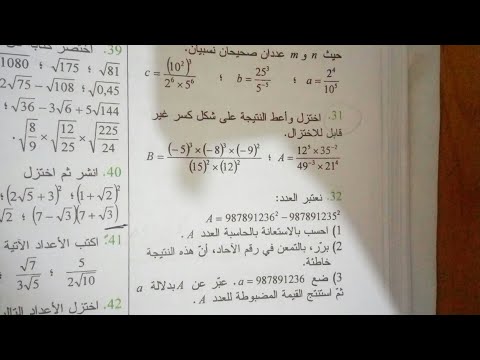 حيث n و m عددان صحيحان نسبيان.
a = 2⁴/10⁵ ؛ b = 25³/5⁻⁵ ؛ c = (10²)³/(2⁶ × 5⁶)
31. اختزل وأعط النتيجة على شكل كسر غير
قابل للاختزال.
A = (12⁵ × 35⁻²)/(49⁻³ × 21⁴) ؛ B = ((−5)³ × (−8)³ × (−9)²)/((15)² × (12)²)
32. نعتبر العدد:
A = 987891236² − 987891235²
1) احسب بالاستعانة بالحاسبة العدد A.
2) برّر، بالتمعن في رقم الآحاد، أنّ هذه النتيجة
خاطئة.
3) ضع a = 987891236. عبّر عن A بدلالة a
ثمّ استنتج القيمة المضبوطة للعدد A.
39. اختصر كتابة
√81 ؛ √175 ؛ √1080
√0,45 ؛ 2√75 − √108
√36 − 3√6 + 5√144
√(8/9) × √(12/25) × √(225/24)
40. انشر ثم اختزل
(1+√2)² ؛ (2√5+3)²
(7−√3)(7+√3) ؛ √2
41. اكتب الأعداد الآتية
5/(2√10) ؛ √7/(3√5)
42. اختزل الأعداد